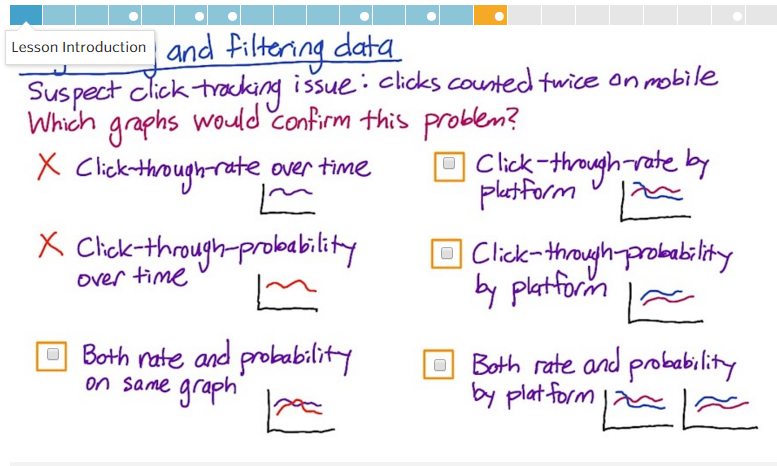 Lesson Introduction
and filtering data
Suspect click-tracking issue: clicks counted twice on mobile
Which graphs would confirm this problem?
X Click-through-rate over time
X Click-through-probability
over time
Both rate and probability
on same graph
Click-through-rate by
platform
Click-through-probability
by platform
Both rate and probability
by platform